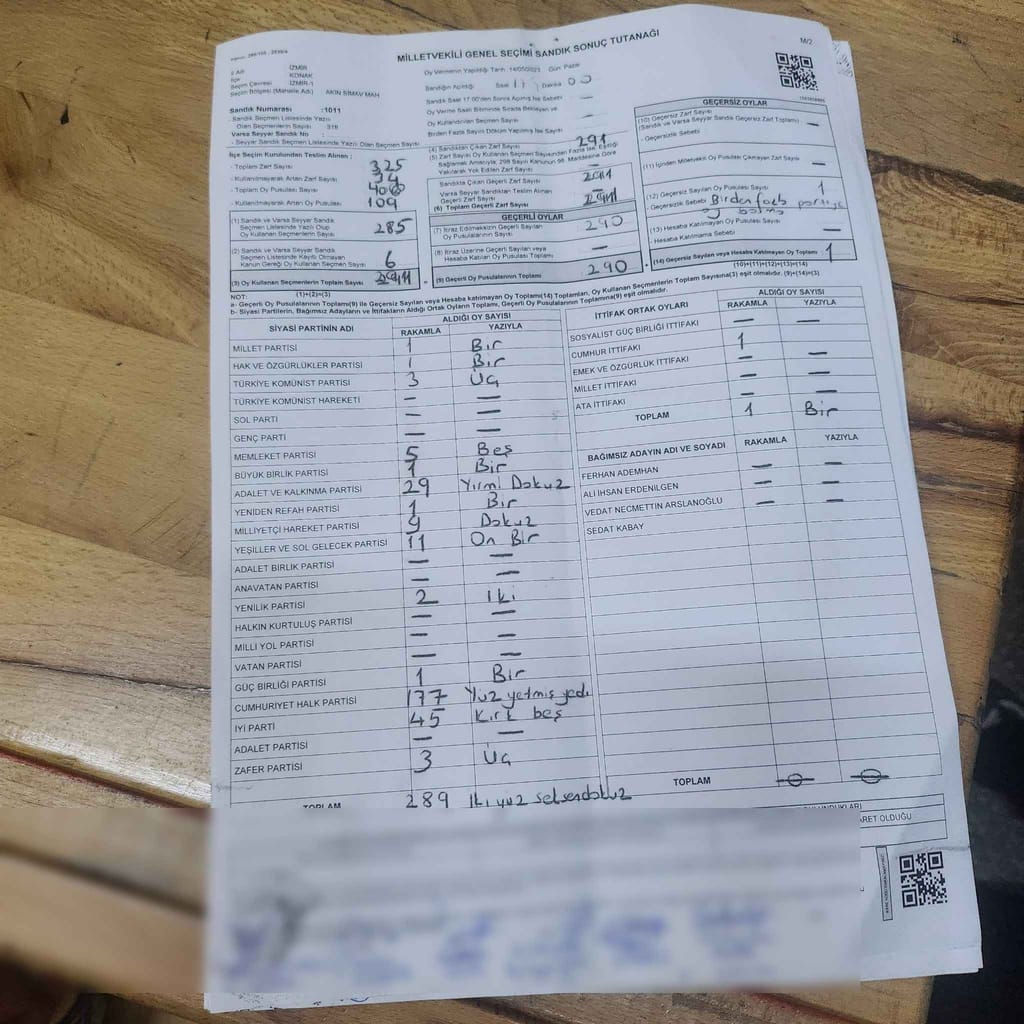 MİLLETVEKİLİ GENEL SEÇİMİ SANDIK SONUÇ TUTANAĞI
M/2
İl Adı İZMİR
İlçe KONAK
Seçim Çevresi İZMİR-1
Seçim Bölgesi (Mahalle Adı) AKIN SİMAV MAH
Sandık Numarası :1011
Sandık Seçmen Listesinde Yazılı
Olan Seçmenlerin Sayısı 316
Varsa Seyyar Sandık No
- Seyyar Sandık Seçmen Listesinde Yazılı Olan Seçmen Sayısı
Oy Vermenin Yapıldığı Tarih 14/05/2023 Gün Pazar
Sandığın Açıldığı Saat 17 Dakika 00
Sandık Saat 17.00'den Sonra Açılmış İse Sebebi —
Oy Verme Saati Bitiminde Sırada Bekleyen ve
Oy Kullandırılan Seçmen Sayısı —
Birden Fazla Sayım Döküm Yapılmış İse Sayısı
İlçe Seçim Kurulundan Teslim Alınan ;
- Toplam Zarf Sayısı 325
- Kullanılmayarak Artan Zarf Sayısı 34
- Toplam Oy Pusulası Sayısı 400
- Kullanılmayarak Artan Oy Pusulası 109
(1) Sandık ve Varsa Seyyar Sandık
Seçmen Listesinde Yazılı Olup
Oy Kullanan Seçmenlerin Sayısı 285
(2) Sandık ve Varsa Seyyar Sandık
Seçmen Listesinde Kayıtlı Olmayan
Kanun Gereği Oy Kullanan Seçmen Sayısı 6
(3) Oy Kullanan Seçmenlerin Toplam Sayısı 291
(1)+(2)=(3)
(4) Sandıktan Çıkan Zarf Sayısı 291
(5) Zarf Sayısı Oy Kullanan Seçmen Sayısından Fazla İse, Eşitliği
Sağlamak Amacıyla, 298 Sayılı Kanunun 98. Maddesine Göre
Yakılarak Yok Edilen Zarf Sayısı —
Sandıkta Çıkan Geçerli Zarf Sayısı 291
Varsa Seyyar Sandıktan Teslim Alınan
Geçerli Zarf Sayısı —
(6) Toplam Geçerli Zarf Sayısı 291
GEÇERLİ OYLAR
(7) İtiraz Edilmeksizin Geçerli Sayılan
Oy Pusulalarının Sayısı 290
(8) İtiraz Üzerine Geçerli Sayılan veya
Hesaba Katılan Oy Pusulası Toplamı —
(9) Geçerli Oy Pusulalarının Toplamı 290
GEÇERSİZ OYLAR
(10) Geçersiz Zarf Sayısı
(Sandık ve Varsa Seyyar Sandık Geçersiz Zarf Toplamı) —
- Geçersizlik Sebebi
(11) İçinden Milletvekili Oy Pusulası Çıkmayan Zarf Sayısı —
(12) Geçersiz Sayılan Oy Pusulası Sayısı 1
- Geçersizlik Sebebi Birden fazla partiye
(13) Hesaba Katılmayan Oy Pusulası Sayısı
- Hesaba Katılmama Sebebi —
(14) Geçersiz Sayılan veya Hesaba Katılmayan Oy Toplamı 1
(10)+(11)+(12)+(13)=(14)
NOT:
a- Geçerli Oy Pusulalarının Toplamı(9) ile Geçersiz Sayılan veya Hesaba katılmayan Oy Toplamı(14) Toplamları, Oy Kullanan Seçmenlerin Toplam Sayısına(3) eşit olmalıdır. (9)+(14)=(3)
b- Siyasi Partilerin, Bağımsız Adayların ve İttifakların Aldığı Ortak Oyların Toplamı, Geçerli Oy Pusulalarının Toplamına(9) eşit olmalıdır.
SİYASİ PARTİNİN ADI ALDIĞI OY SAYISI
RAKAMLA YAZIYLA
MİLLET PARTİSİ 1 Bir
HAK VE ÖZGÜRLÜKLER PARTİSİ 1 Bir
TÜRKİYE KOMÜNİST PARTİSİ 3 Üç
TÜRKİYE KOMÜNİST HAREKETİ — —
SOL PARTİ — —
GENÇ PARTİ — —
MEMLEKET PARTİSİ 5 Beş
BÜYÜK BİRLİK PARTİSİ 1 Bir
ADALET VE KALKINMA PARTİSİ 29 Yirmi Dokuz
YENİDEN REFAH PARTİSİ 1 Bir
MİLLİYETÇİ HAREKET PARTİSİ 9 Dokuz
YEŞİLLER VE SOL GELECEK PARTİSİ 11 On Bir
ADALET BİRLİK PARTİSİ — —
ANAVATAN PARTİSİ — —
YENİLİK PARTİSİ 2 İki
HALKIN KURTULUŞ PARTİSİ — —
MİLLİ YOL PARTİSİ — —
VATAN PARTİSİ — —
GÜÇ BİRLİĞİ PARTİSİ 1 Bir
CUMHURİYET HALK PARTİSİ 177 Yüz yetmiş yedi
İYİ PARTİ 45 Kırk beş
ADALET PARTİSİ — —
ZAFER PARTİSİ 3 Üç
TOPLAM 289 İki yüz seksendokuz
İTTİFAK ORTAK OYLARI ALDIĞI OY SAYISI
RAKAMLA YAZIYLA
SOSYALİST GÜÇ BİRLİĞİ İTTİFAKI — —
CUMHUR İTTİFAKI 1
EMEK VE ÖZGÜRLÜK İTTİFAKI — —
MİLLET İTTİFAKI — —
ATA İTTİFAKI — —
TOPLAM 1 Bir
BAĞIMSIZ ADAYIN ADI VE SOYADI RAKAMLA YAZIYLA
FERHAN ADEMHAN — —
ALİ İHSAN ERDENİLGEN — —
VEDAT NECMETTİN ARSLANOĞLU — —
SEDAT KABAY
TOPLAM
ARET OLDUĞU